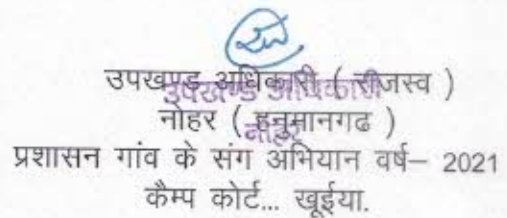 उपखण्ड अधिकारी ( राजस्व )
उपखण्ड अधिकारी
नोहर ( हनुमानगढ )
नोहर
प्रशासन गांव के संग अभियान वर्ष– 2021
कैम्प कोर्ट... खूईया.